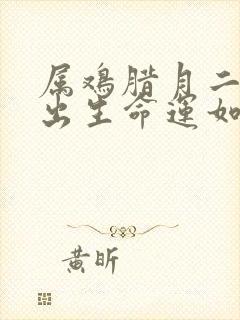 属鸡腊月二
出生命运如
黄昕